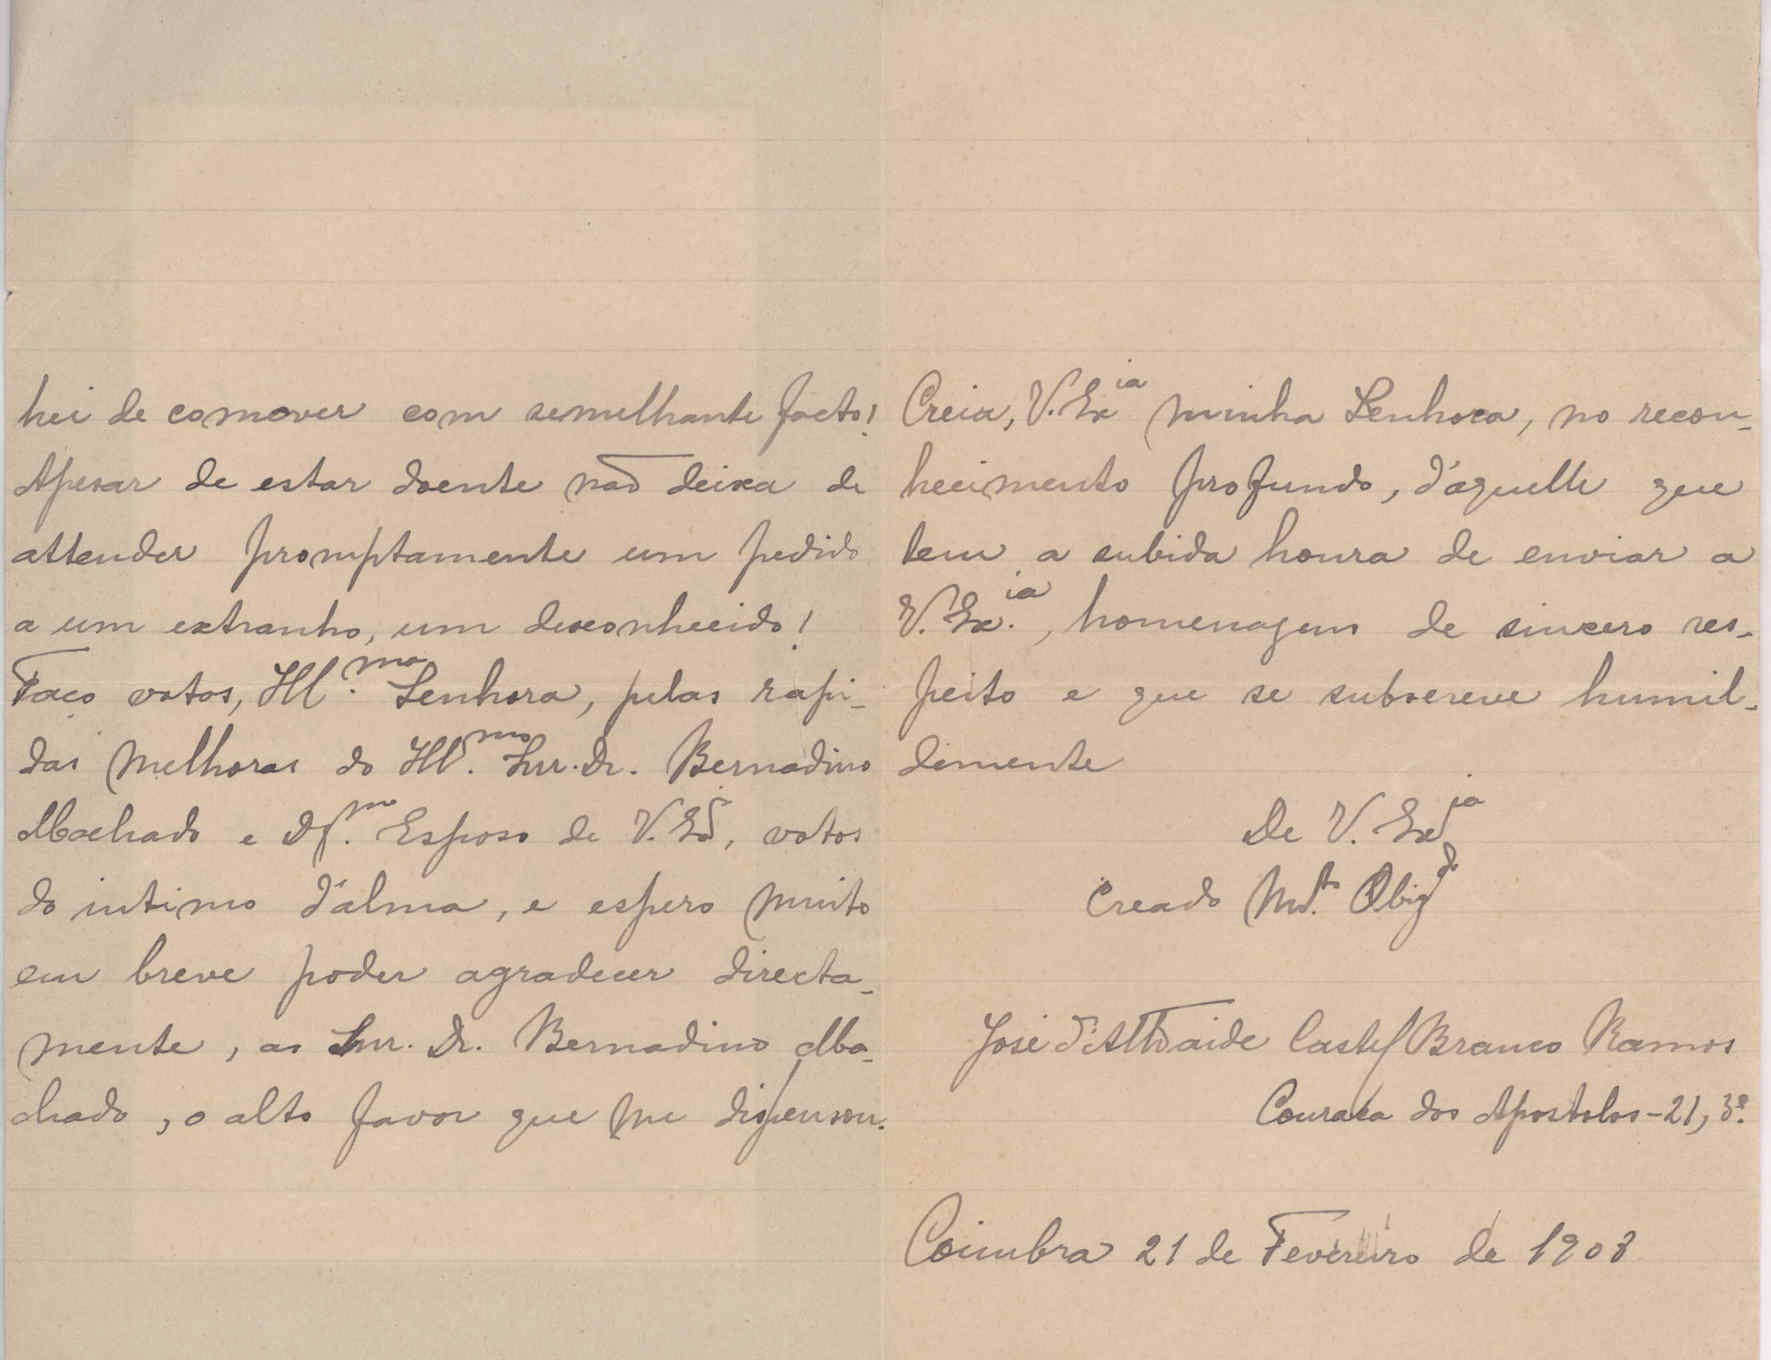 hei de comover com semelhante facto!
Apesar de estar doente não deixa de
attender promptamente um pedido
a um extranho, um desconhecido!
Faço votos, Ill.ma Senhora, pelas rapi-
das melhoras do Ill.mo Snr. Dr. Bernadino
Machado e D.mo Esposo de V. Ex.ª, votos
do intimo d'alma, e espero muito
em breve poder agradecer directa-
mente, ao Snr. Dr. Bernadino Ma-
chado, o alto favor que me dispensou.
Creia, V. Ex.ia minha Senhora, no recon-
hecimento profundo, d'aquelle que
tem a subida honra de enviar a
V. Ex.ia, homenagens de sincero res-
peito e que se subscreve humil-
demente
De V. Ex.ia
Creado M.to Obrig.do
José d'Athaide Castel Branco Ramos
Couraça dos Apostolos - 21, 3º.
Coimbra 21 de Fevereiro de 1908